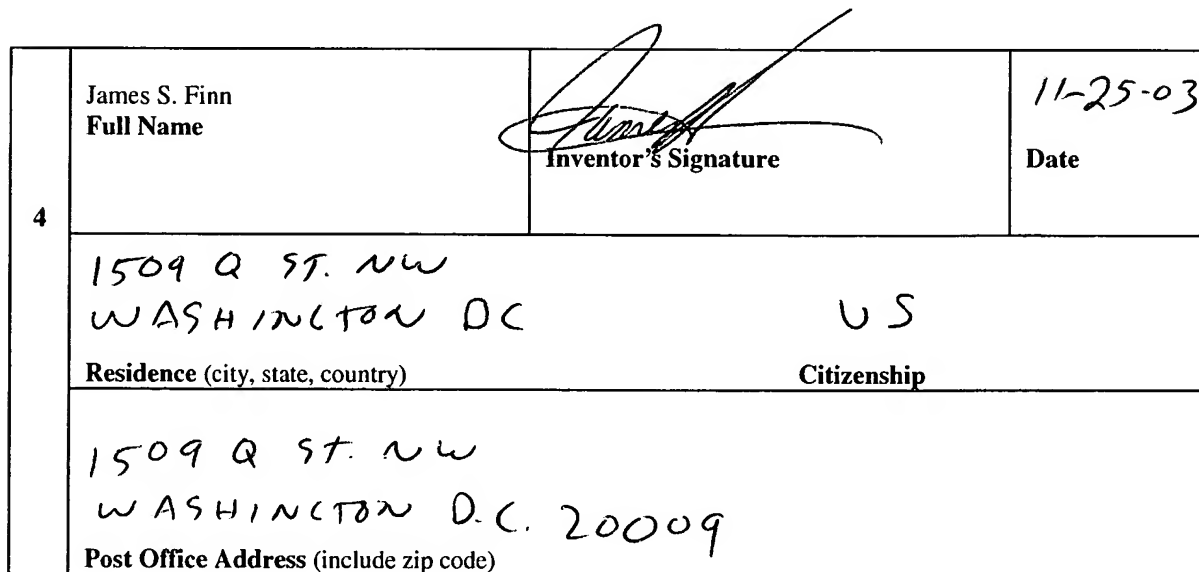 4
James S. Finn
Full Name
James
Inventor's Signature
11-25-03
Date
1509 Q ST. NW
WASHINGTON DC
US
Residence (city, state, country)
Citizenship
1509 Q ST. NW
WASHINGTON D.C. 20009
Post Office Address (include zip code)